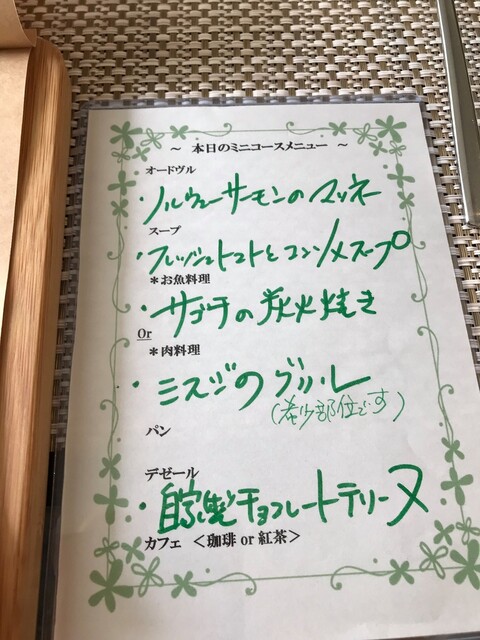 ～ 本日のミニコースメニュー ～
オードヴル
・ノルウェーサーモンのマリネ
スープ
・フレッシュトマトとコンソメスープ
＊お魚料理
・サゴチの炭火焼き
Or
＊肉料理
・ミスジのグリル
(希少部位です)
パン
デゼール
・自家製チョコレートテリーヌ
カフェ ＜珈琲 or 紅茶＞